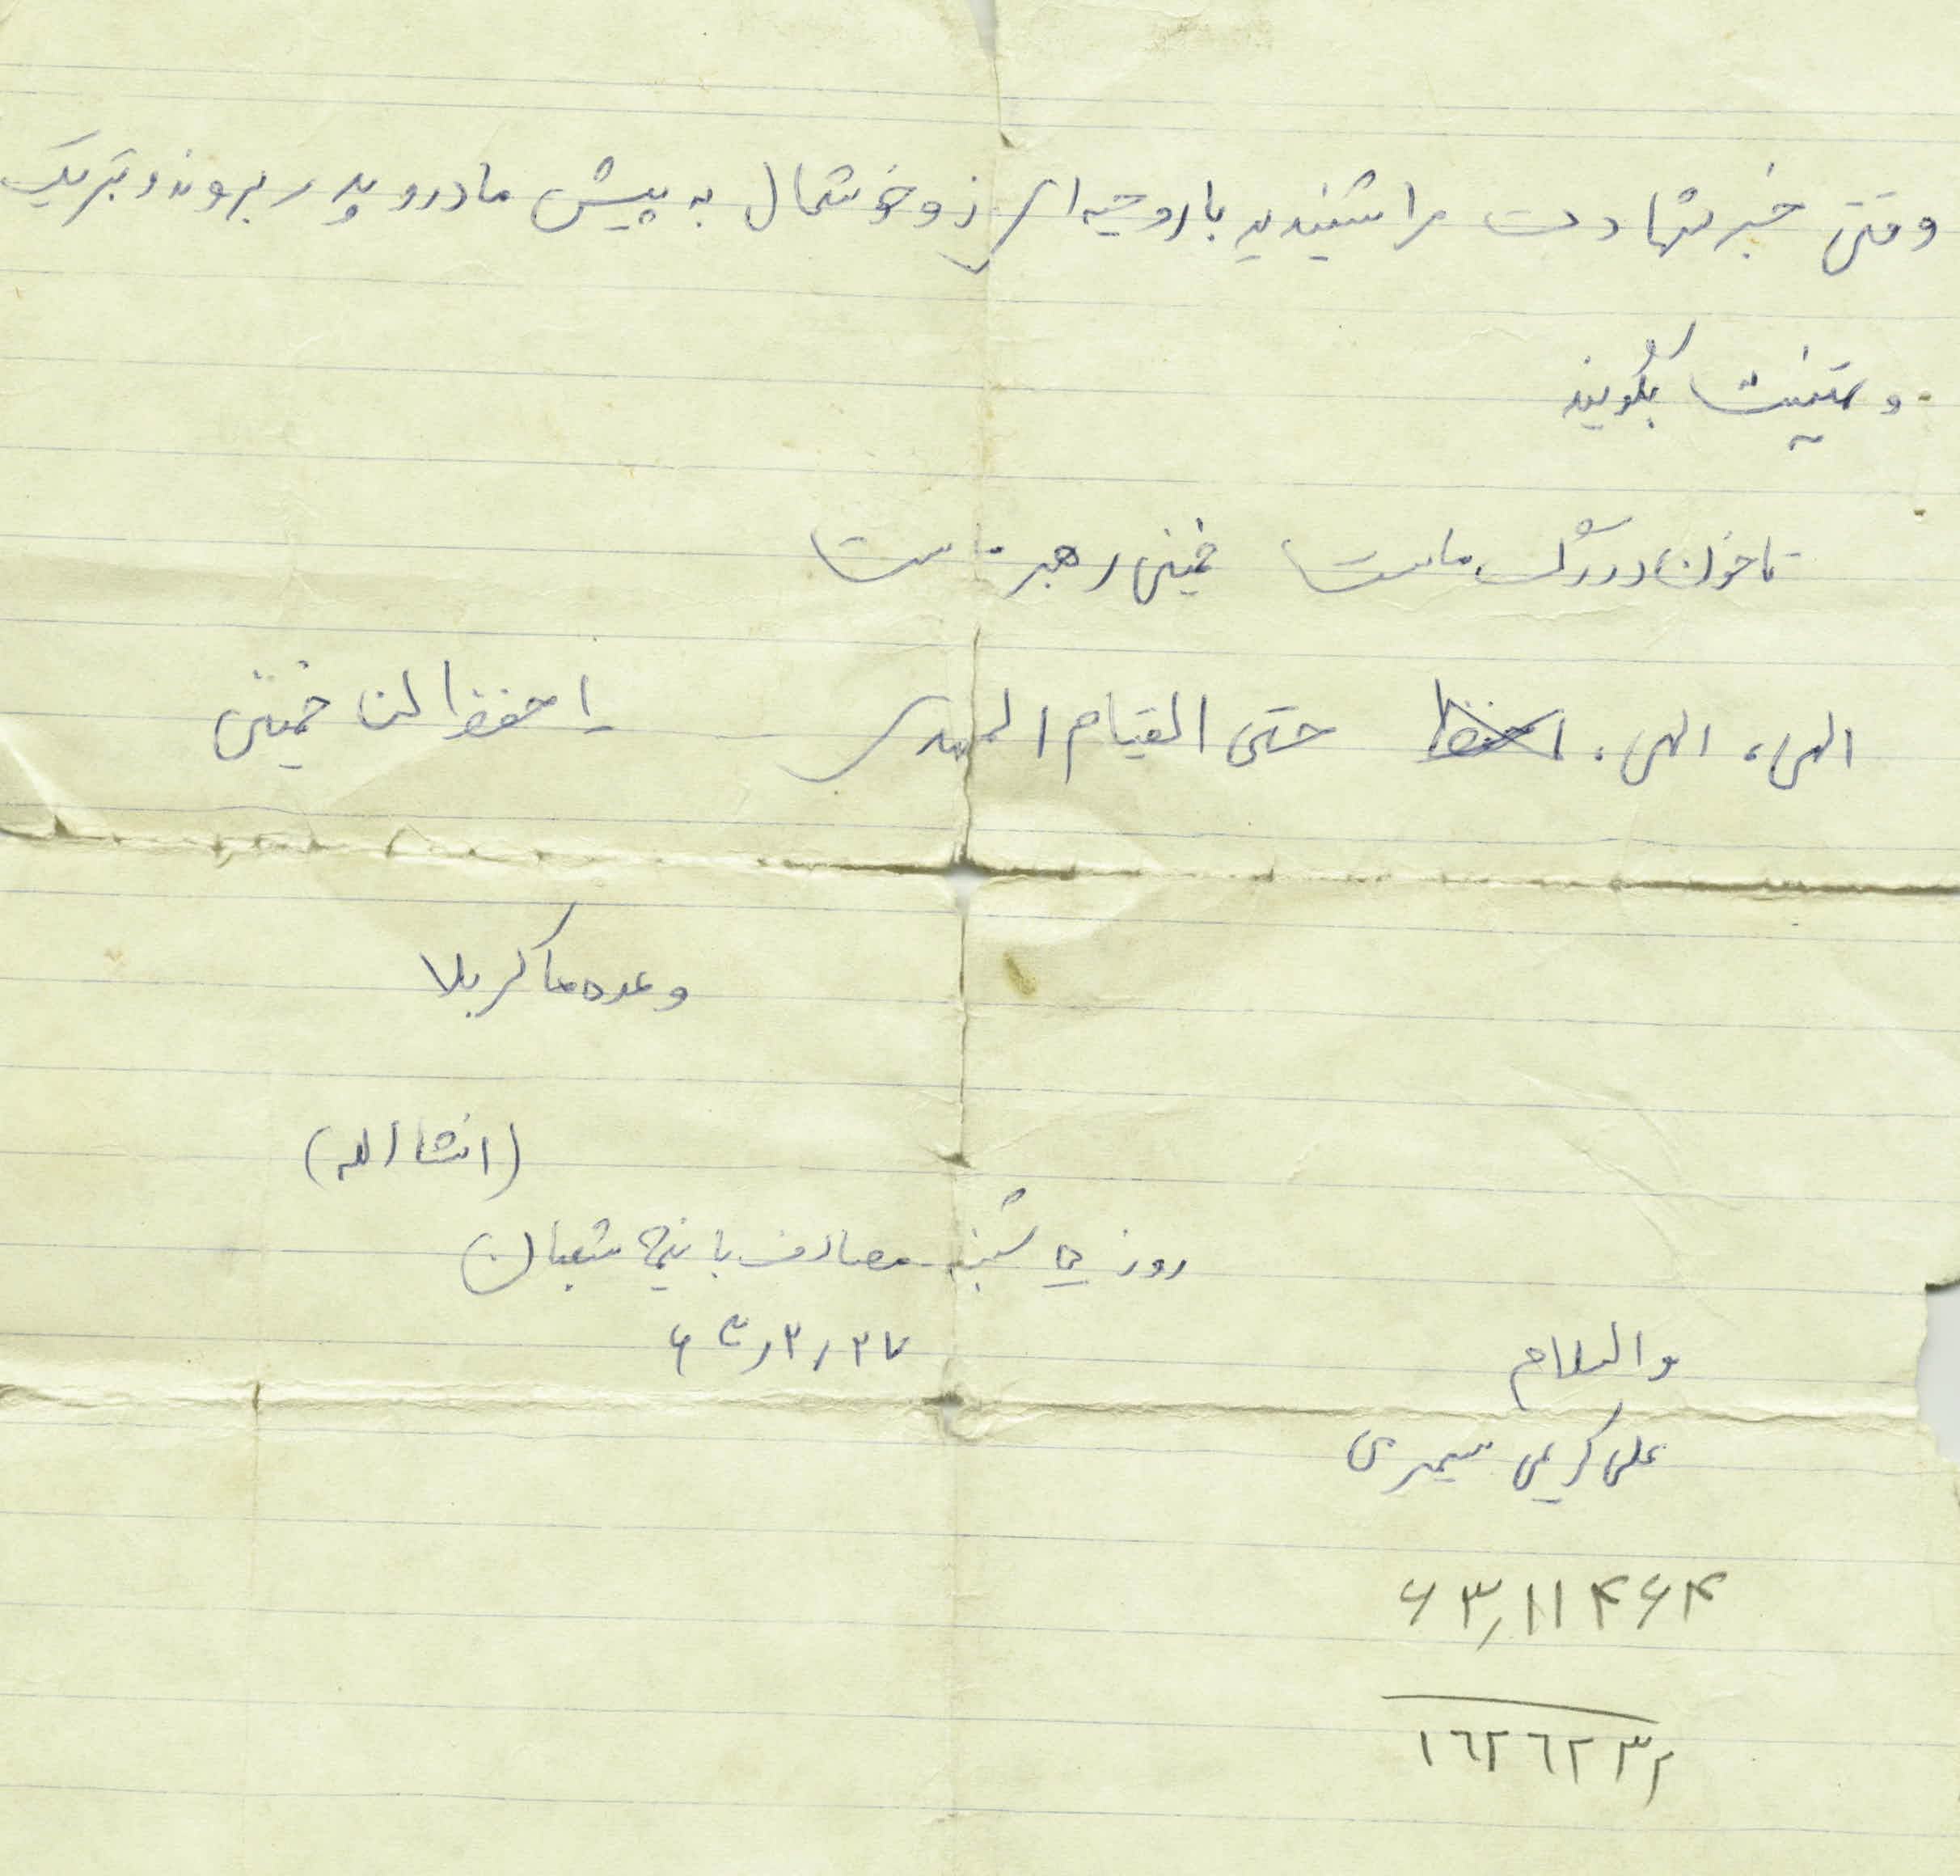 وقتی خبر شهادت مرا شنیدید با روحیه ای ز و خوشحال به پیش مادر و پدر بروند و تبریک
و تهنیت بگویند
تا خون در رگ ماست خمینی رهبر ماست
الهی، الهی، حتی القیام المهدی احفظ لنا خمینی
وعده ما کربلا
(انشاالله)
روز شنبه مصادف با نیمه شعبان
والسلام
علی کریمی سیمری
۶۳٫۱۱۴۶۴
۱٦٢٦٢٣٢